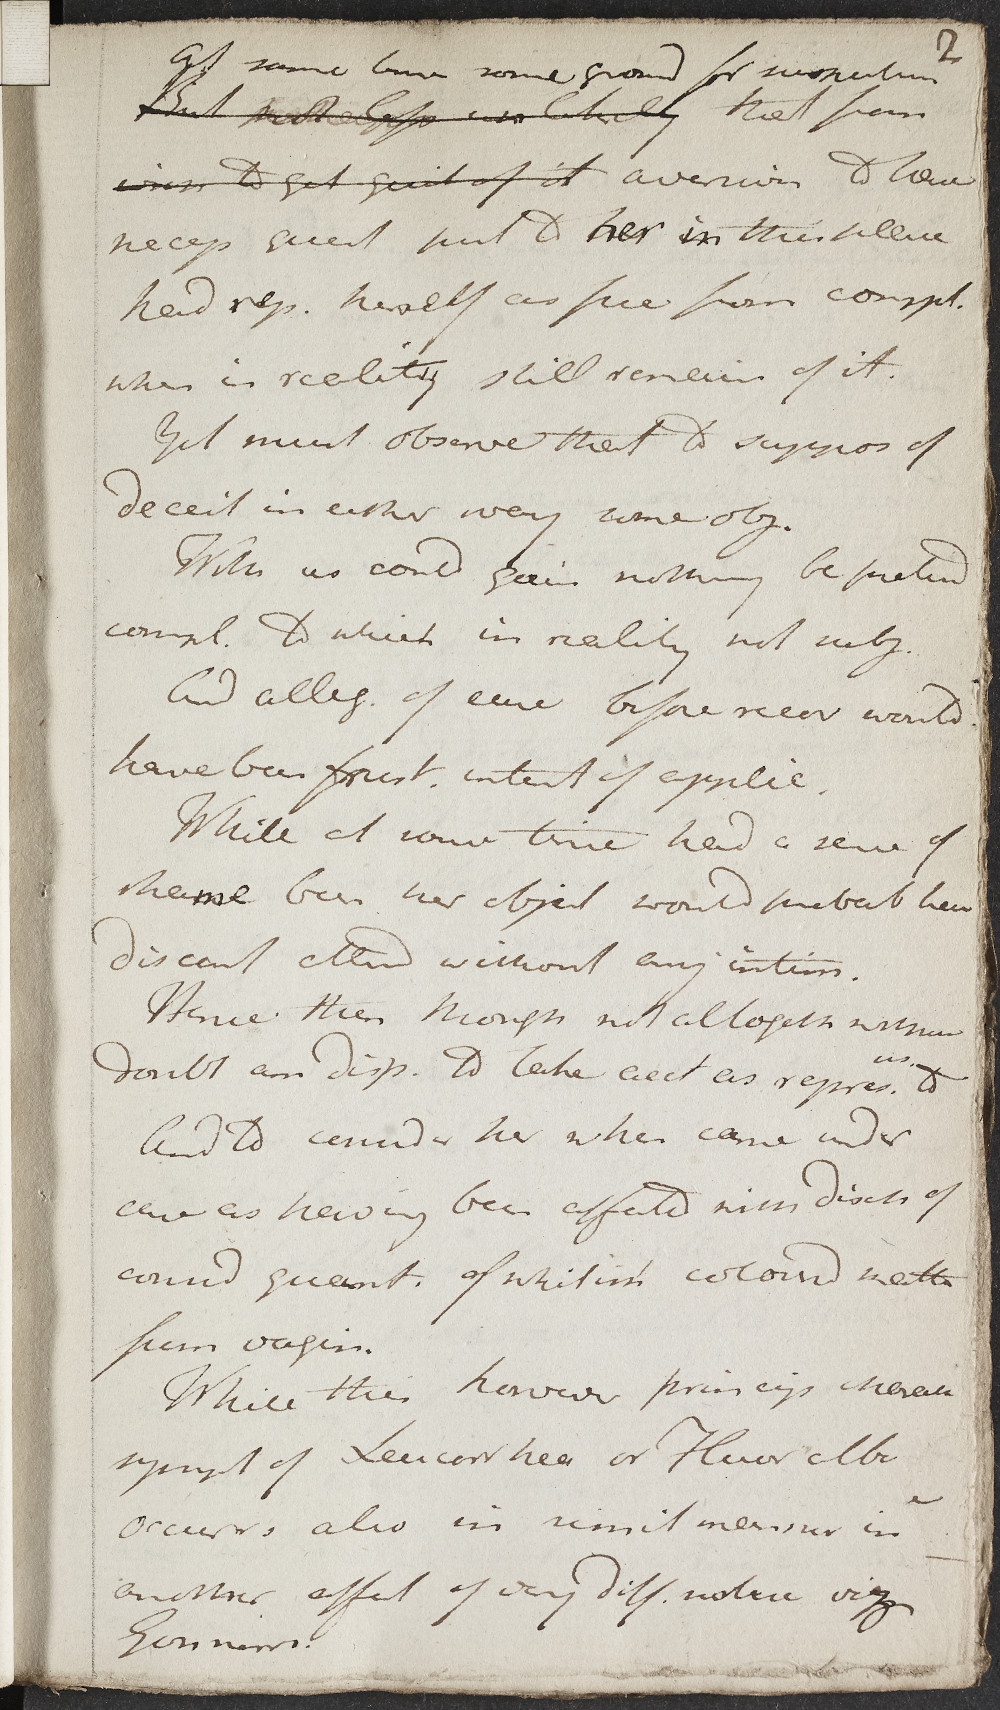 2
at same time some ground for suspicion
But not less unlikely that from
even to get quit of it aversion to have
necess quest put to her in this place
had rep. herself as free from compl.
when in reality still remain of it.
Yet must observe that to suppos of
deceit in either way some obj.
With us could gain nothing be pretend
compl. to which in reality not subj.
And alleg. of cure before recov would
have been frust. intent of applic.
While at same time had a sense of
shame been her object would probab hav
discont attend without any intim.
Hence then though not altogeth without
doubt am disp. to take acct as repres. to us
And to consider her when came under
care as having been affected with disch of
consid quant. of whitish colourd matter
from vagin.
While this however princip charact
sympt of Leucorrhea or Fluor albu
occurrs also in simil manner in
another affect of very diff. nature viz
Gonnorr.